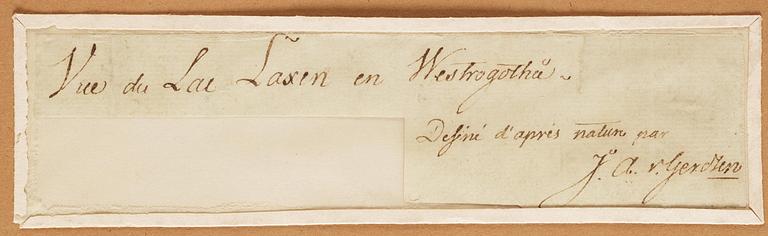 Vue du Lac Laxen en Westrogothie
Desiné d'après nature par
J. A. v. Gerdten